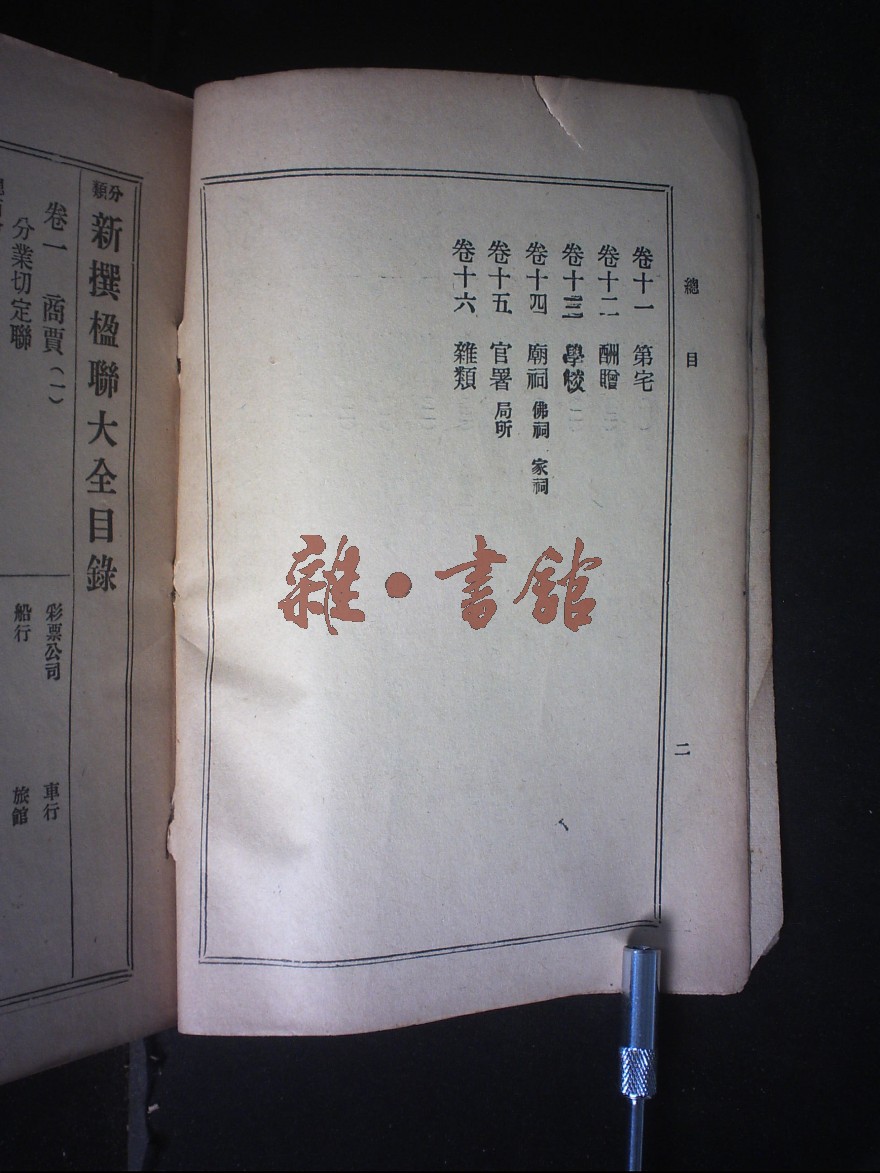 總目
二
卷十一 第宅
卷十二 酬贈
卷十三 學校
卷十四 廟祠 佛祠 家祠
卷十五 官署 局所
卷十六 雜類
雜·書館
分類 新撰楹聯大全目錄
卷一 商賈(一)
分業切定聯
彩票公司 車行
船行 旅館